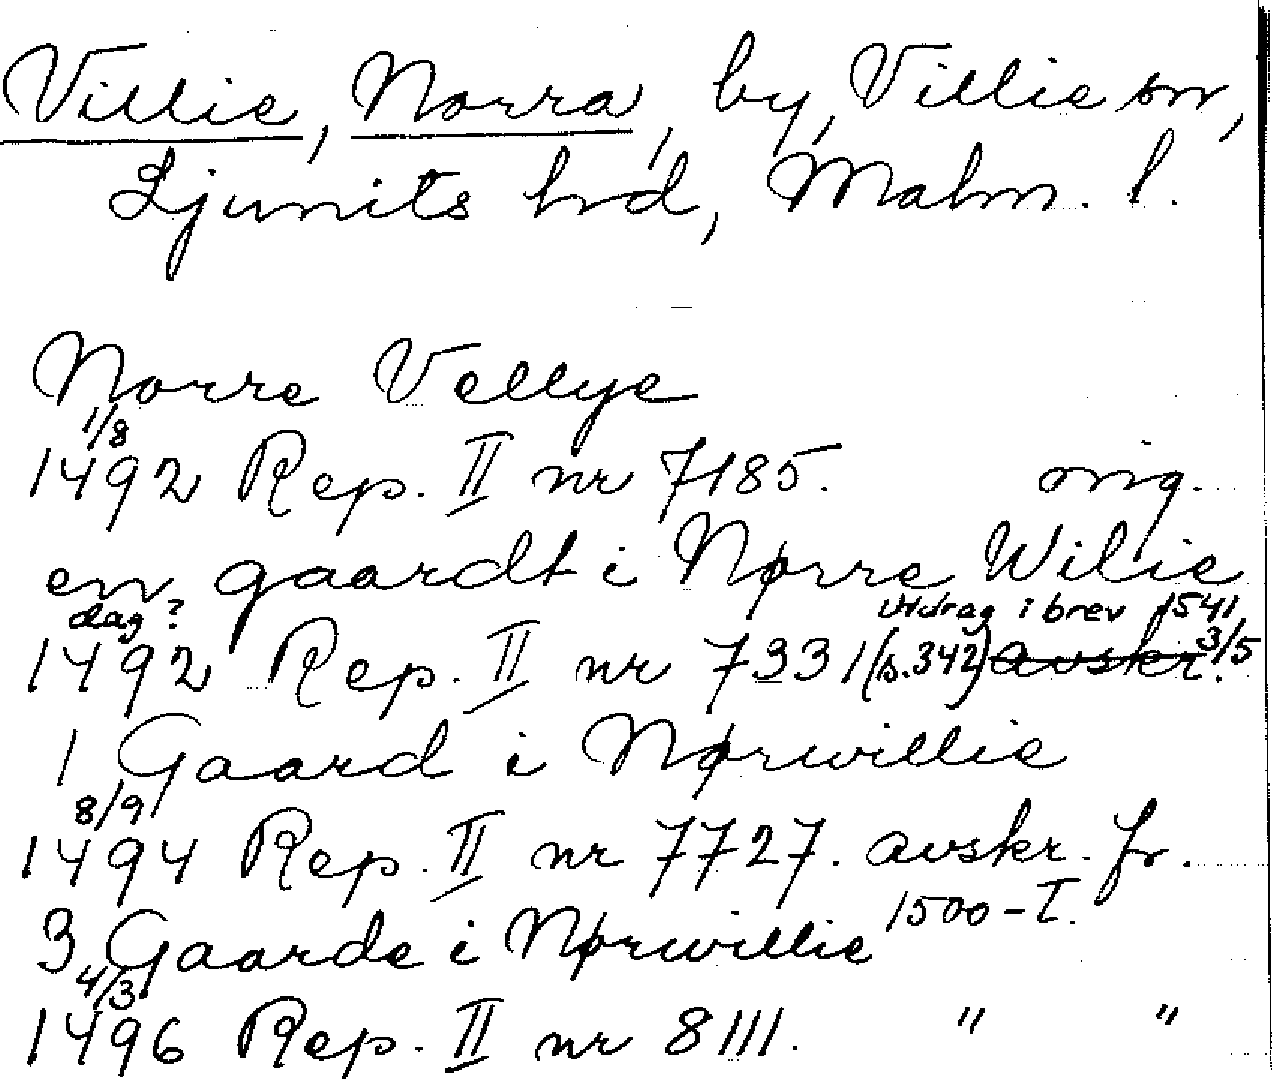 Villie, Norra, by, Villie sn,
Ljunits hrd, Malm. l.
Norre Vellye
1/8
1492 Rep. II nr 7185. orig.
en gaardt i Nørre Wilie
dag? utdrag i brev 1541
1492 Rep. II nr 7331 (s.342) avskr. 3/5
1 Gaard i Nørwillie
8/9
1494 Rep. II nr 7727. avskr. fr.
1500-T.
3 Gaarde i Nørwillie
4/3
1496 Rep. II nr 8111. " "